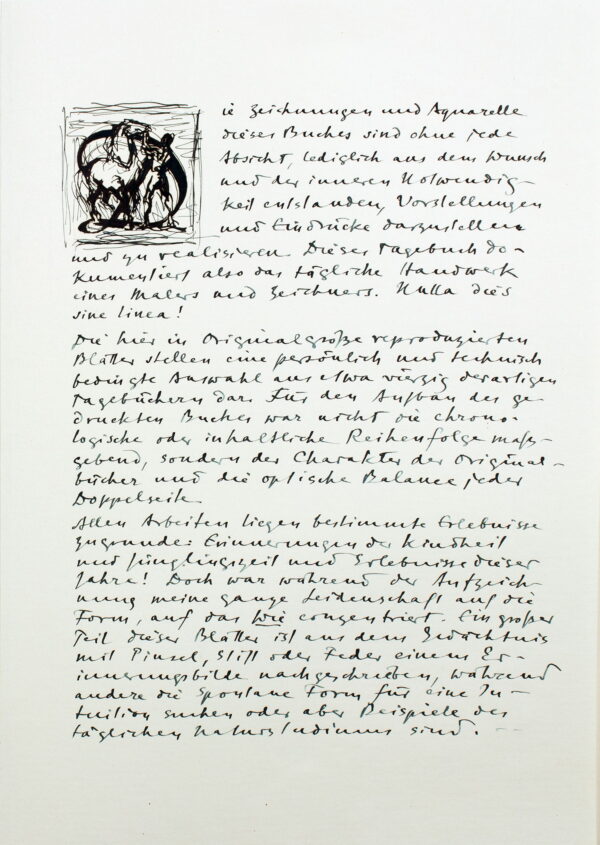 Die Zeichnungen und Aquarelle
dieses Buches sind ohne jede
Absicht, lediglich aus dem Wunsch
und der inneren Notwendig-
keit entstanden, Vorstellungen
und Eindrücke darzustellen
und zu realisieren. Dieses Tagebuch do-
kumentiert also das tägliche Handwerk
eines Malers und Zeichners. Nulla dies
sine linea!
Die hier in Originalgröße reproduzierten
Blätter stellen eine persönlich und technisch
bedingte Auswahl aus etwa vierzig derartigen
Tagebüchern dar. Für den Aufbau des ge-
druckten Buches war nicht die chrono-
logische oder inhaltliche Reihenfolge maß-
gebend, sondern der Charakter der Original-
bücher und die optische Balance jeder
Doppelseite.
Allen Arbeiten liegen bestimmte Erlebnisse
zugrunde: Erinnerungen der Kindheit
und Jünglingszeit und Erlebnisse dieser
Jahre! Doch war während der Aufzeich-
nung meine ganze Leidenschaft auf die
Form, auf das Wie conzentriert. Ein großer
Teil dieser Blätter ist aus dem Gedächtnis
mit Pinsel, Stift oder Feder einem Er-
innerungsbilde nachgeschrieben, während
andere die spontane Form für eine In-
tuition suchen oder aber Beispiele des
täglichen Naturstudiums sind.